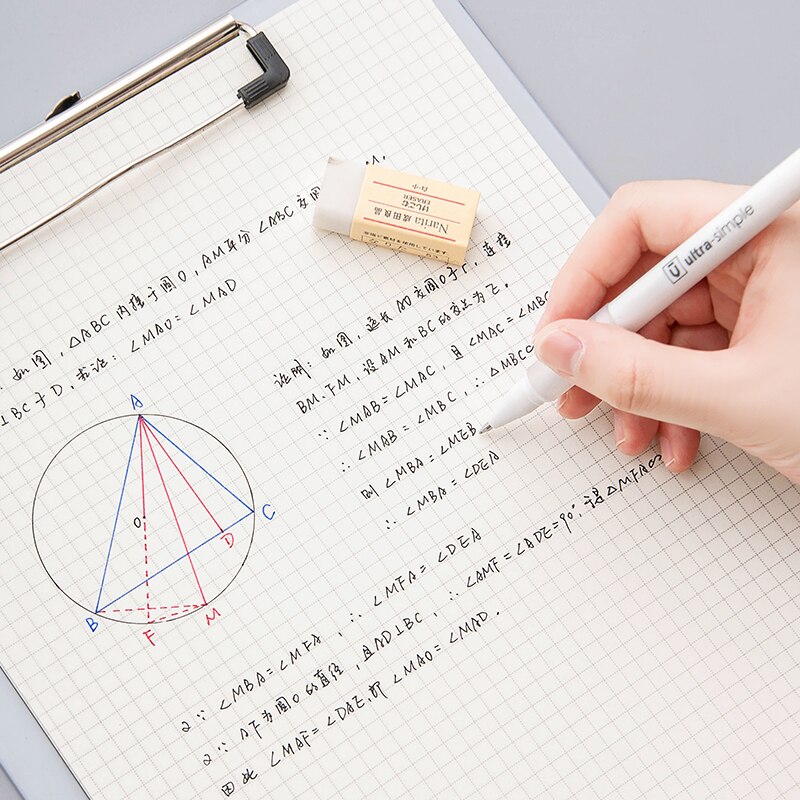 如图，△ABC 内接于圆O，AM平分 ∠ABC 交圆
⊥BC于D，求证：∠MAO=∠MAD
证明：如图，延长 AO交圆O于F，连接
BM.FM，设AM和BC的交点为E。
∵ ∠MAB=∠MAC，且 ∠MAC=∠MBC
∴ ∠MAB=∠MBC，∴ △MBC
则 ∠MBA=∠MEB
∴ ∠MBA=∠DEA
又∵ ∠MBA=∠MFA，∴ ∠MFA=∠DEA
又∵ AF为圆O的直径，且AD⊥BC，∴ ∠AMF=∠ADE=90°.得△MFA∽
因此 ∠MAF=∠DAE，即 ∠MAO=∠MAD.
A
O
C
D
B
F
M
白·小
ERASER
けしごむ
Narita 成田良品
U ultra-simple